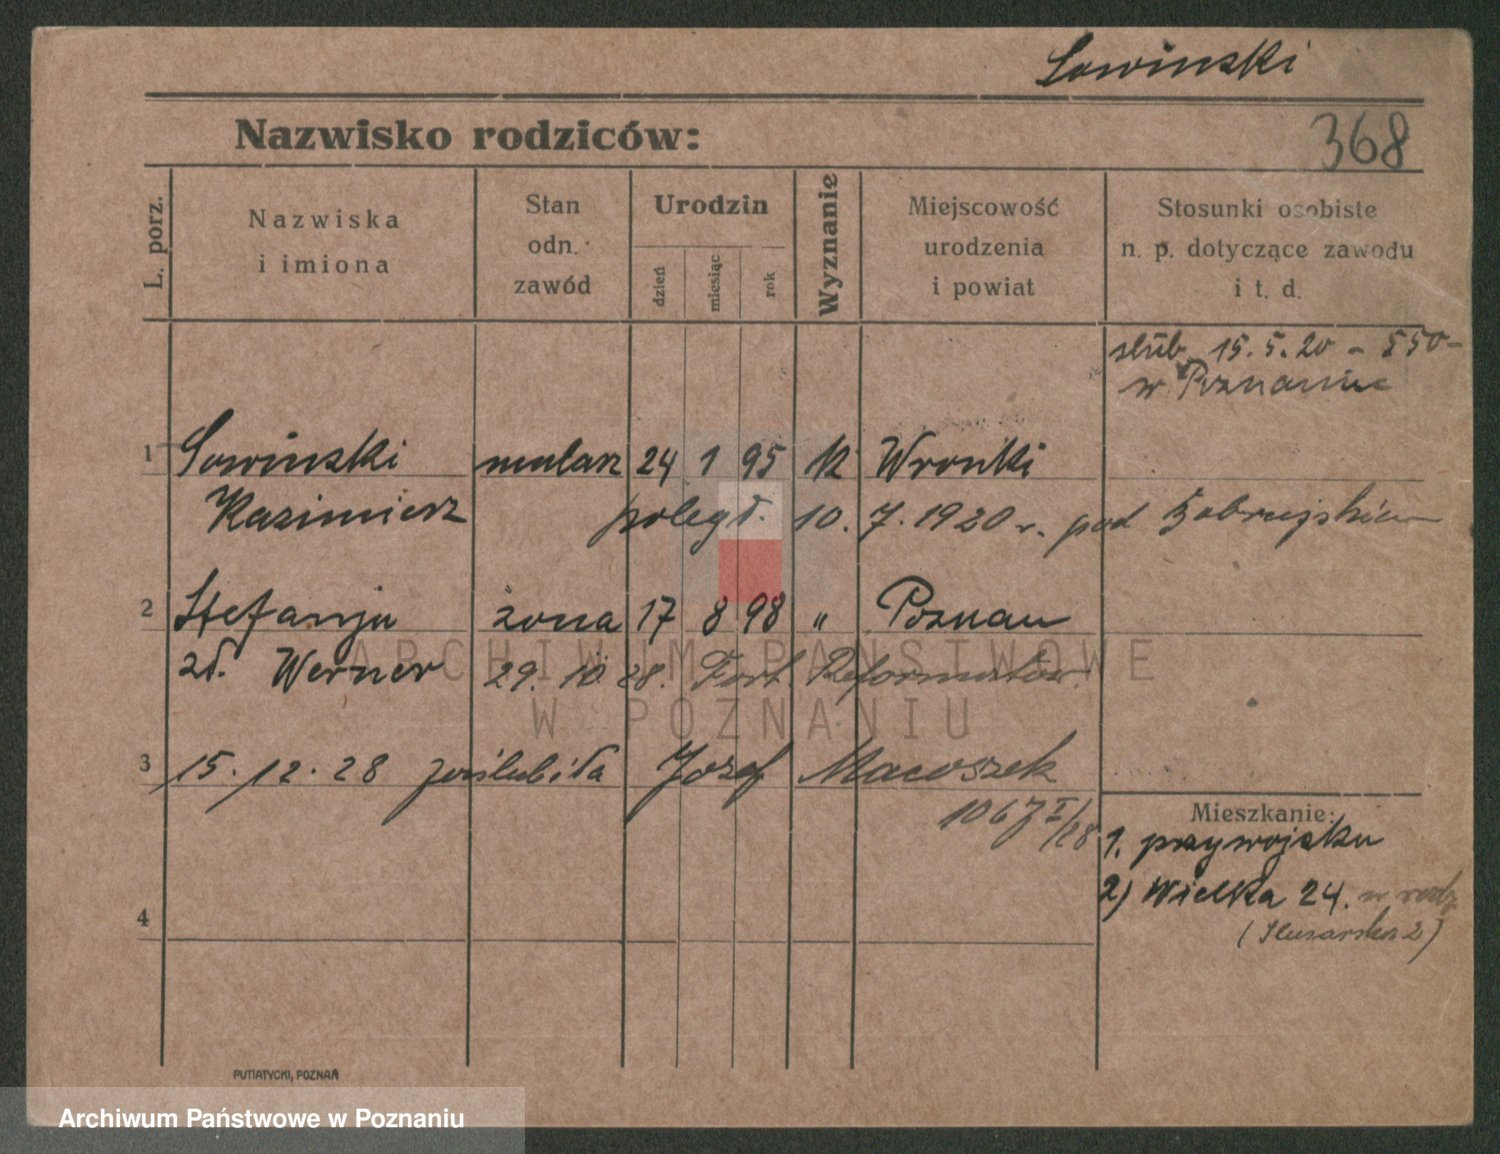 Sowinski
368
Nazwisko rodziców:
L. porz.
Nazwiska
i imiona
Stan
odn.
zawód
Urodzin
dzień
miesiąc
rok
Wyznanie
Miejscowość
urodzenia
i powiat
Stosunki osobiste
n. p. dotyczące zawodu
i t. d.
slub 15.5.20 - 550-
w Poznaniu
1 Sowinski mularz 24 1 95 rk Wronki
Kazimierz poległ. 10. 7. 1920 r. pod
2 Stefanja żona 17 8 98 " Poznan
zd. Werner 29. 10. 28. Fort. Reformatów.
3 15.12.28 poślubiła Józef Macoszek
1067 I/28
Mieszkanie:
1. przy wojsku
2) Wielka 24. w rodz
(Slusarska 2)
4
PUTIATYCKI, POZNAŃ
ARCHIWUM PAŃSTWOWE
W POZNANIU
Archiwum Państwowe w Poznaniu